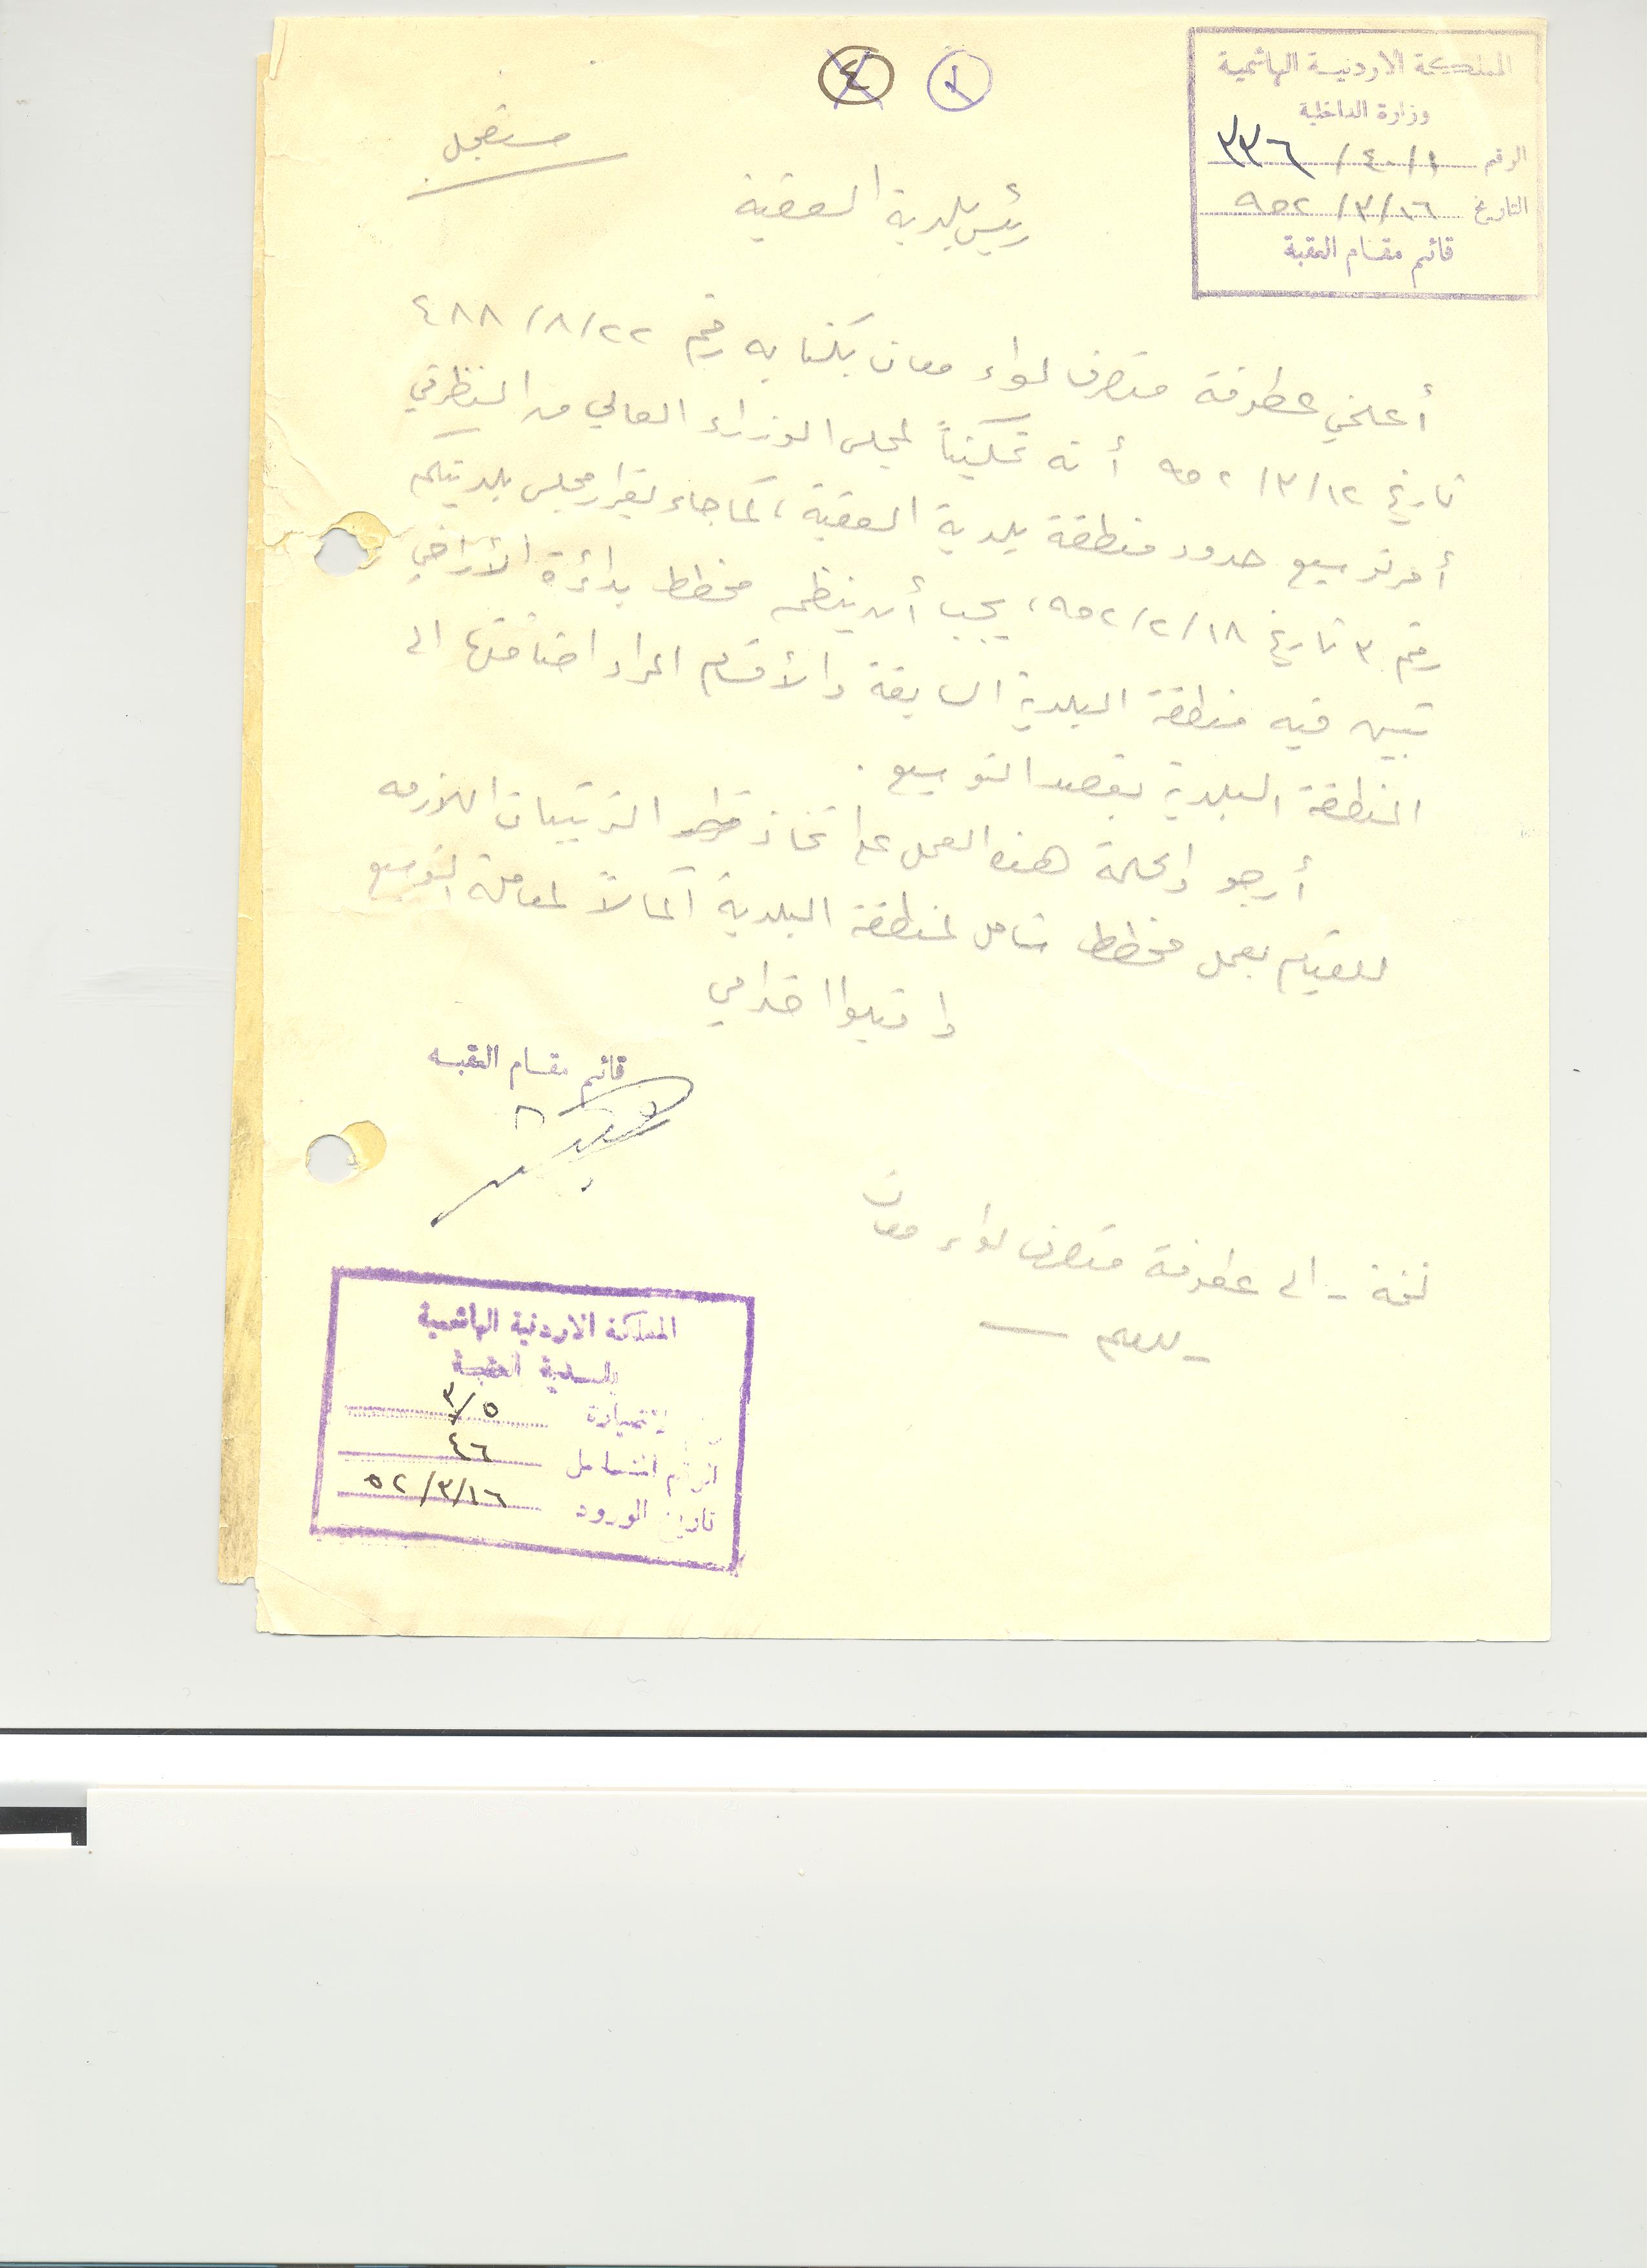 ٤
المملكة الاردنية الهاشمية
وزارة الداخلية
الرقم ١/٤٠/٣٣٦
التاريخ ١٦/٣/٩٥٢
قائم مقام العقبة
مستعجل
رئيس بلدية العقبة
أعلمني عطوفة متصرف لواء معان بكتابه رقم ٢٢/٨/٤٨٨
تاريخ ١٢/٣/٩٥٢ أنه تمكيناً لمجلس الوزراء العالي من النظر في
أمر توسيع حدود منطقة بلدية العقبة، كما جاء بقرار مجلس بلديتكم
رقم ٣ تاريخ ١٨/٢/٩٥٢، يجب أن ينظم مخطط بدائرة الأراضي
تبين فيه منطقة البلدية السابقة والأقسام المراد اضافتها الى
المنطقة البلدية بقصد التوسيع .
أرجو والحالة هذه العمل على اتخاذ الترتيبات اللازمه
للقيام بعمل مخطط شامل لمنطقة البلدية اكمالاً لمعاملة التوسيع
واقبلوا احترامي
قائم مقام العقبه
نسخة - الى عطوفة متصرف لواء معان
المملكة الاردنية الهاشمية
بلدية العقبة
٣/٥
الرقم المتسلسل ٤٦
تاريخ الورود ١٦/٣/٥٢